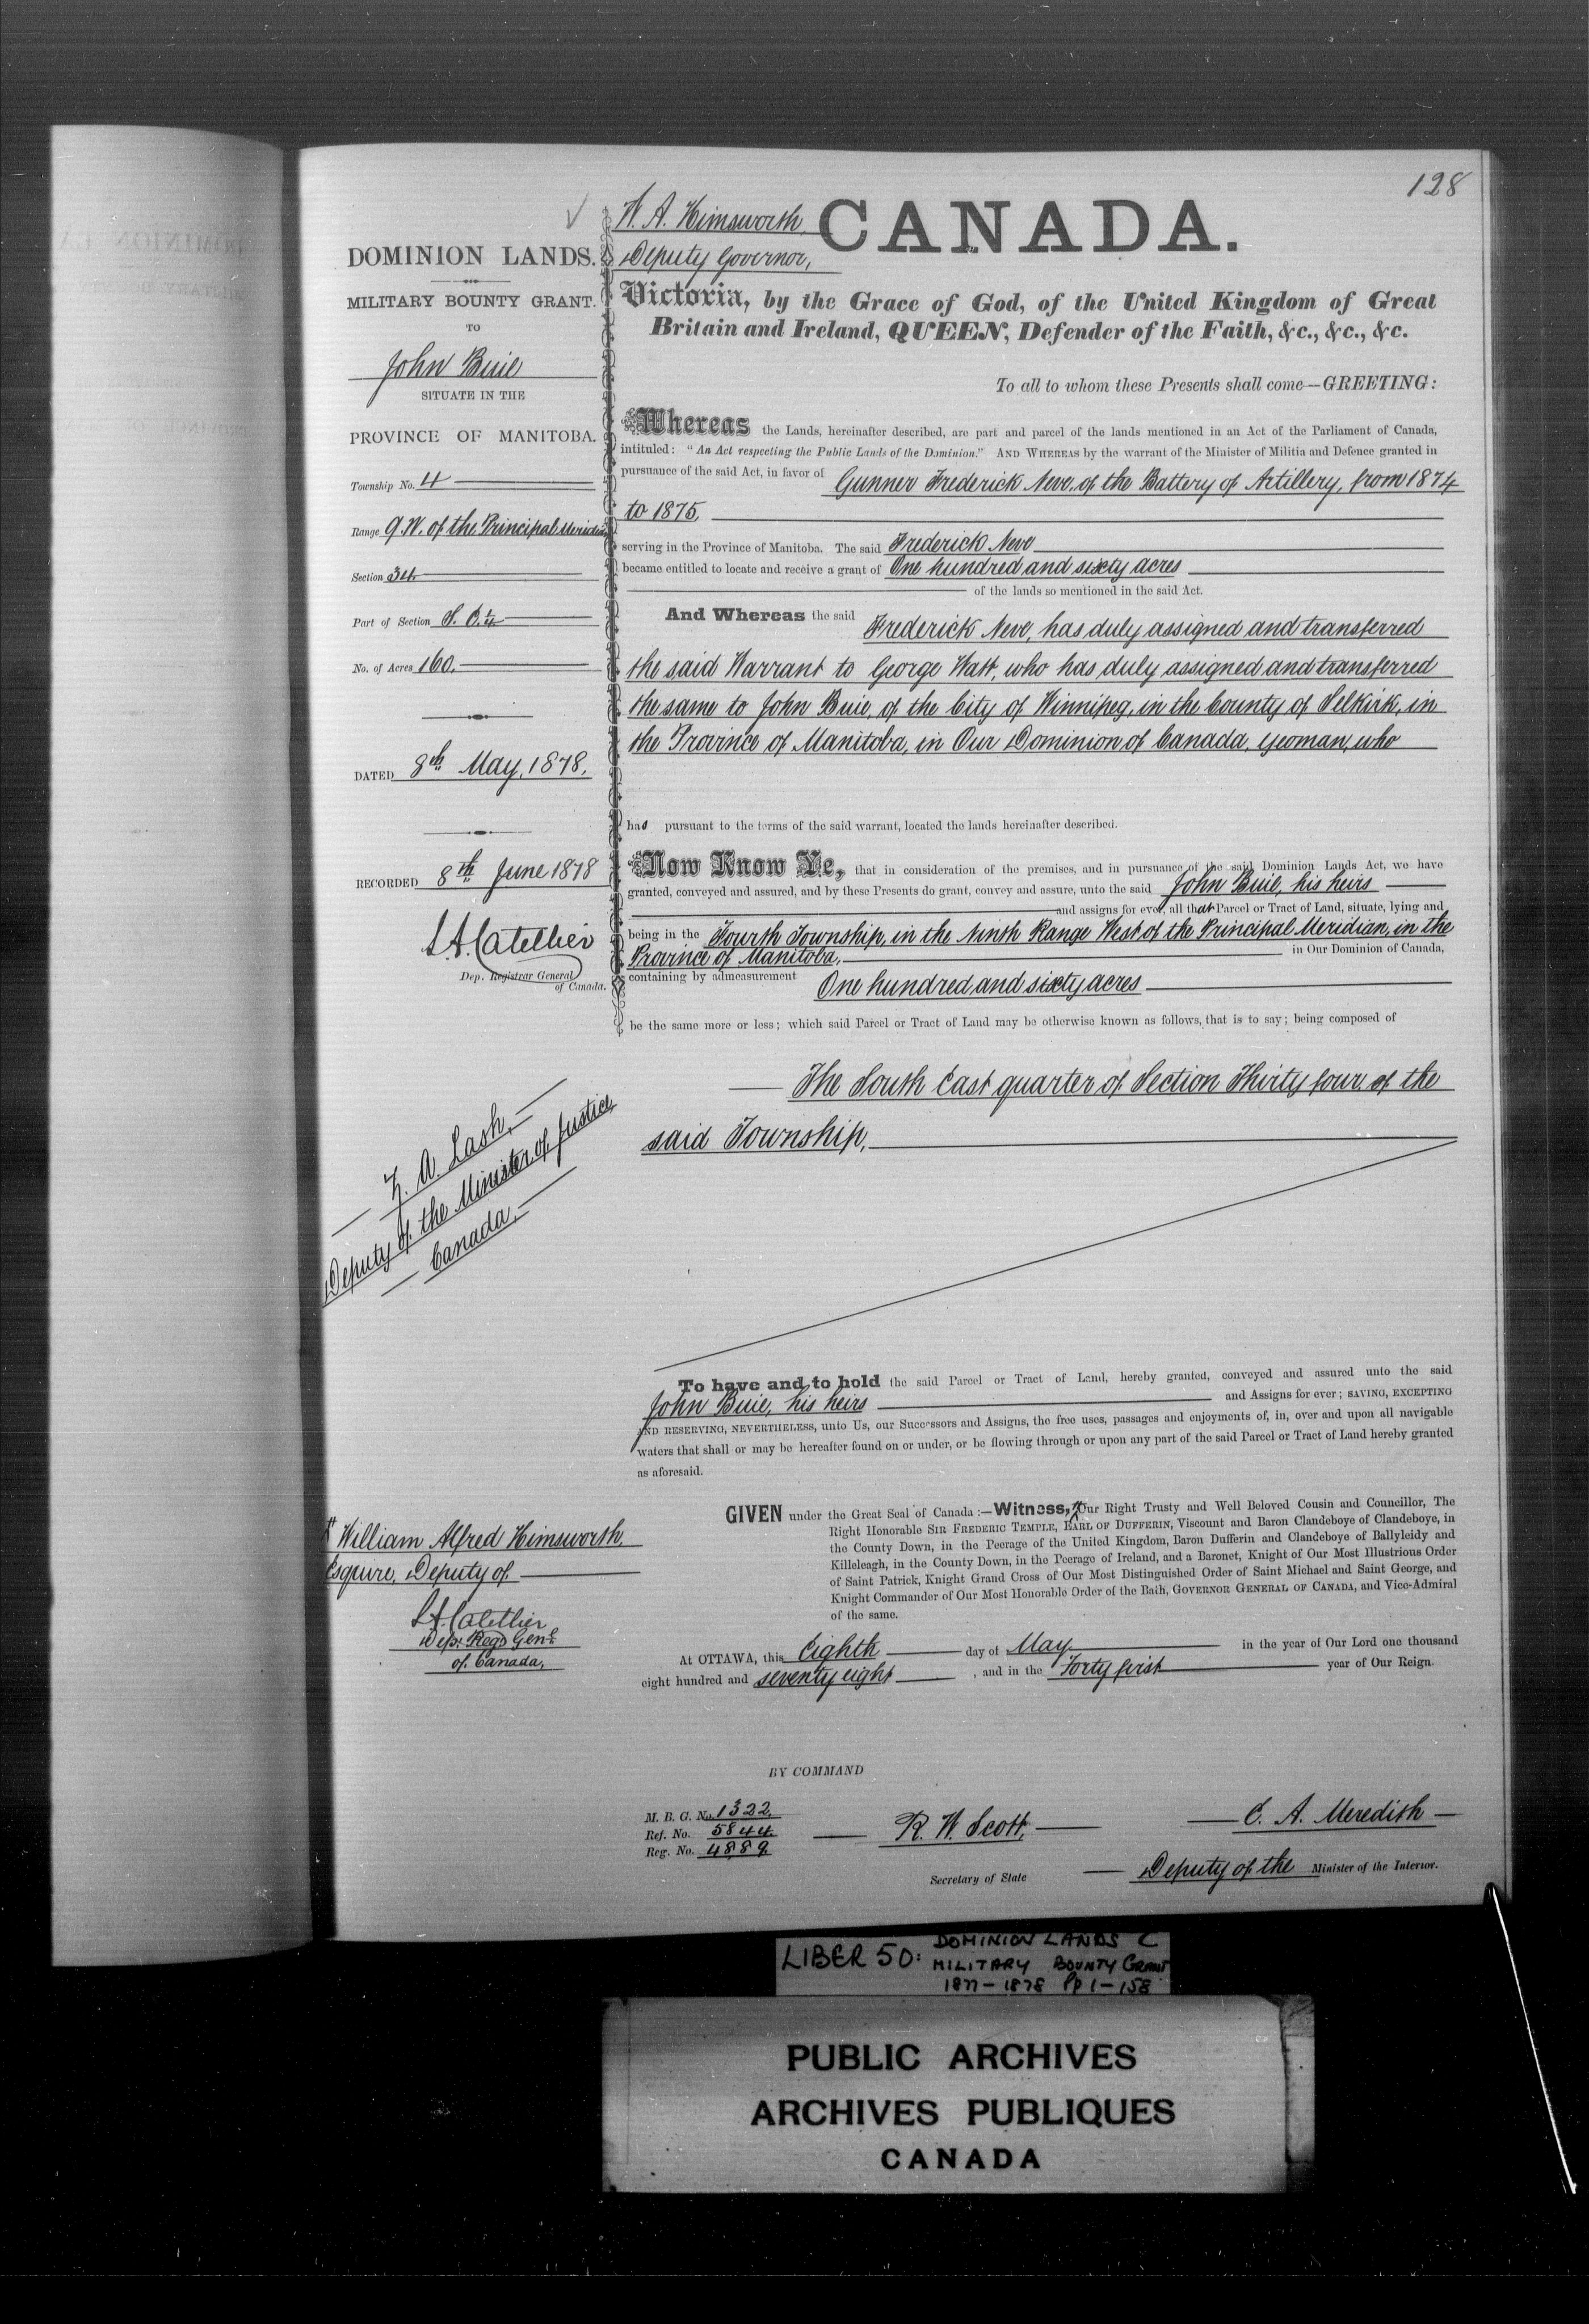 128
W. A. Himsworth,
Deputy Governor,
CANADA.
DOMINION LANDS.
MILITARY BOUNTY GRANT.
TO
John Buie
SITUATE IN THE
PROVINCE OF MANITOBA.
Township No. 4
Range 9 W. of the Principal Meridian
Section 34
Part of Section S. E. ¼
No. of Acres 160.
DATED 8th May, 1878.
RECORDED 8th June 1878
L. A. Catellier
Dep. Registrar General
of Canada.
Victoria, by the Grace of God, of the United Kingdom of Great
Britain and Ireland, QUEEN, Defender of the Faith, &c., &c., &c.
To all to whom these Presents shall come—GREETING:
Whereas the Lands, hereinafter described, are part and parcel of the lands mentioned in an Act of the Parliament of Canada,
intituled: "An Act respecting the Public Lands of the Dominion." AND WHEREAS by the warrant of the Minister of Militia and Defence granted in
pursuance of the said Act, in favor of Gunner Frederick Neve, of the Battery of Artillery, from 1874
to 1875,
serving in the Province of Manitoba. The said Frederick Neve
became entitled to locate and receive a grant of One hundred and sixty acres
of the lands so mentioned in the said Act.
And Whereas the said Frederick Neve, has duly assigned and transferred
the said Warrant to George Watt, who has duly assigned and transferred
the same to John Buie, of the City of Winnipeg, in the County of Selkirk, in
the Province of Manitoba, in Our Dominion of Canada, yeoman, who
has pursuant to the terms of the said warrant, located the lands hereinafter described.
Now Know Ye, that in consideration of the premises, and in pursuance of the said Dominion Lands Act, we have
granted, conveyed and assured, and by these Presents do grant, convey and assure, unto the said John Buie, his heirs
and assigns for ever, all that Parcel or Tract of Land, situate, lying and
being in the Fourth Township, in the Ninth Range West of the Principal Meridian, in the
Province of Manitoba, in Our Dominion of Canada,
containing by admeasurement One hundred and sixty acres
be the same more or less; which said Parcel or Tract of Land may be otherwise known as follows, that is to say; being composed of
The South East quarter of Section Thirty four, of the
said Township,
Z. A. Lash,
Deputy of the Minister of Justice
Canada,
To have and to hold the said Parcel or Tract of Land, hereby granted, conveyed and assured unto the said
John Buie, his heirs and Assigns for ever; SAVING, EXCEPTING
AND RESERVING, NEVERTHELESS, unto Us, our Successors and Assigns, the free uses, passages and enjoyments of, in, over and upon all navigable
waters that shall or may be hereafter found on or under, or be flowing through or upon any part of the said Parcel or Tract of Land hereby granted
as aforesaid.
GIVEN under the Great Seal of Canada:—Witness, Our Right Trusty and Well Beloved Cousin and Councillor, The
Right Honorable SIR FREDERIC TEMPLE, EARL OF DUFFERIN, Viscount and Baron Clandeboye of Clandeboye, in
the County Down, in the Peerage of the United Kingdom, Baron Dufferin and Clandeboye of Ballyleidy and
Killeleagh, in the County Down, in the Peerage of Ireland, and a Baronet, Knight of Our Most Illustrious Order
of Saint Patrick, Knight Grand Cross of Our Most Distinguished Order of Saint Michael and Saint George, and
Knight Commander of Our Most Honorable Order of the Bath, GOVERNOR GENERAL OF CANADA, and Vice-Admiral
of the same.
William Alfred Himsworth,
Esquire, Deputy of
L. A. Catellier
Dep. Regr Genl
of Canada,
At OTTAWA, this Eighth day of May in the year of Our Lord one thousand
eight hundred and seventy eight, and in the Forty first year of Our Reign.
BY COMMAND
M. B. G. No. 1322
Ref. No. 5844
Reg. No. 4889
R. W. Scott,
Secretary of State
E. A. Meredith
Deputy of the Minister of the Interior.
LIBER 50: DOMINION LANDS C
MILITARY BOUNTY GRANT
1877-1878 Pp 1-158
PUBLIC ARCHIVES
ARCHIVES PUBLIQUES
CANADA